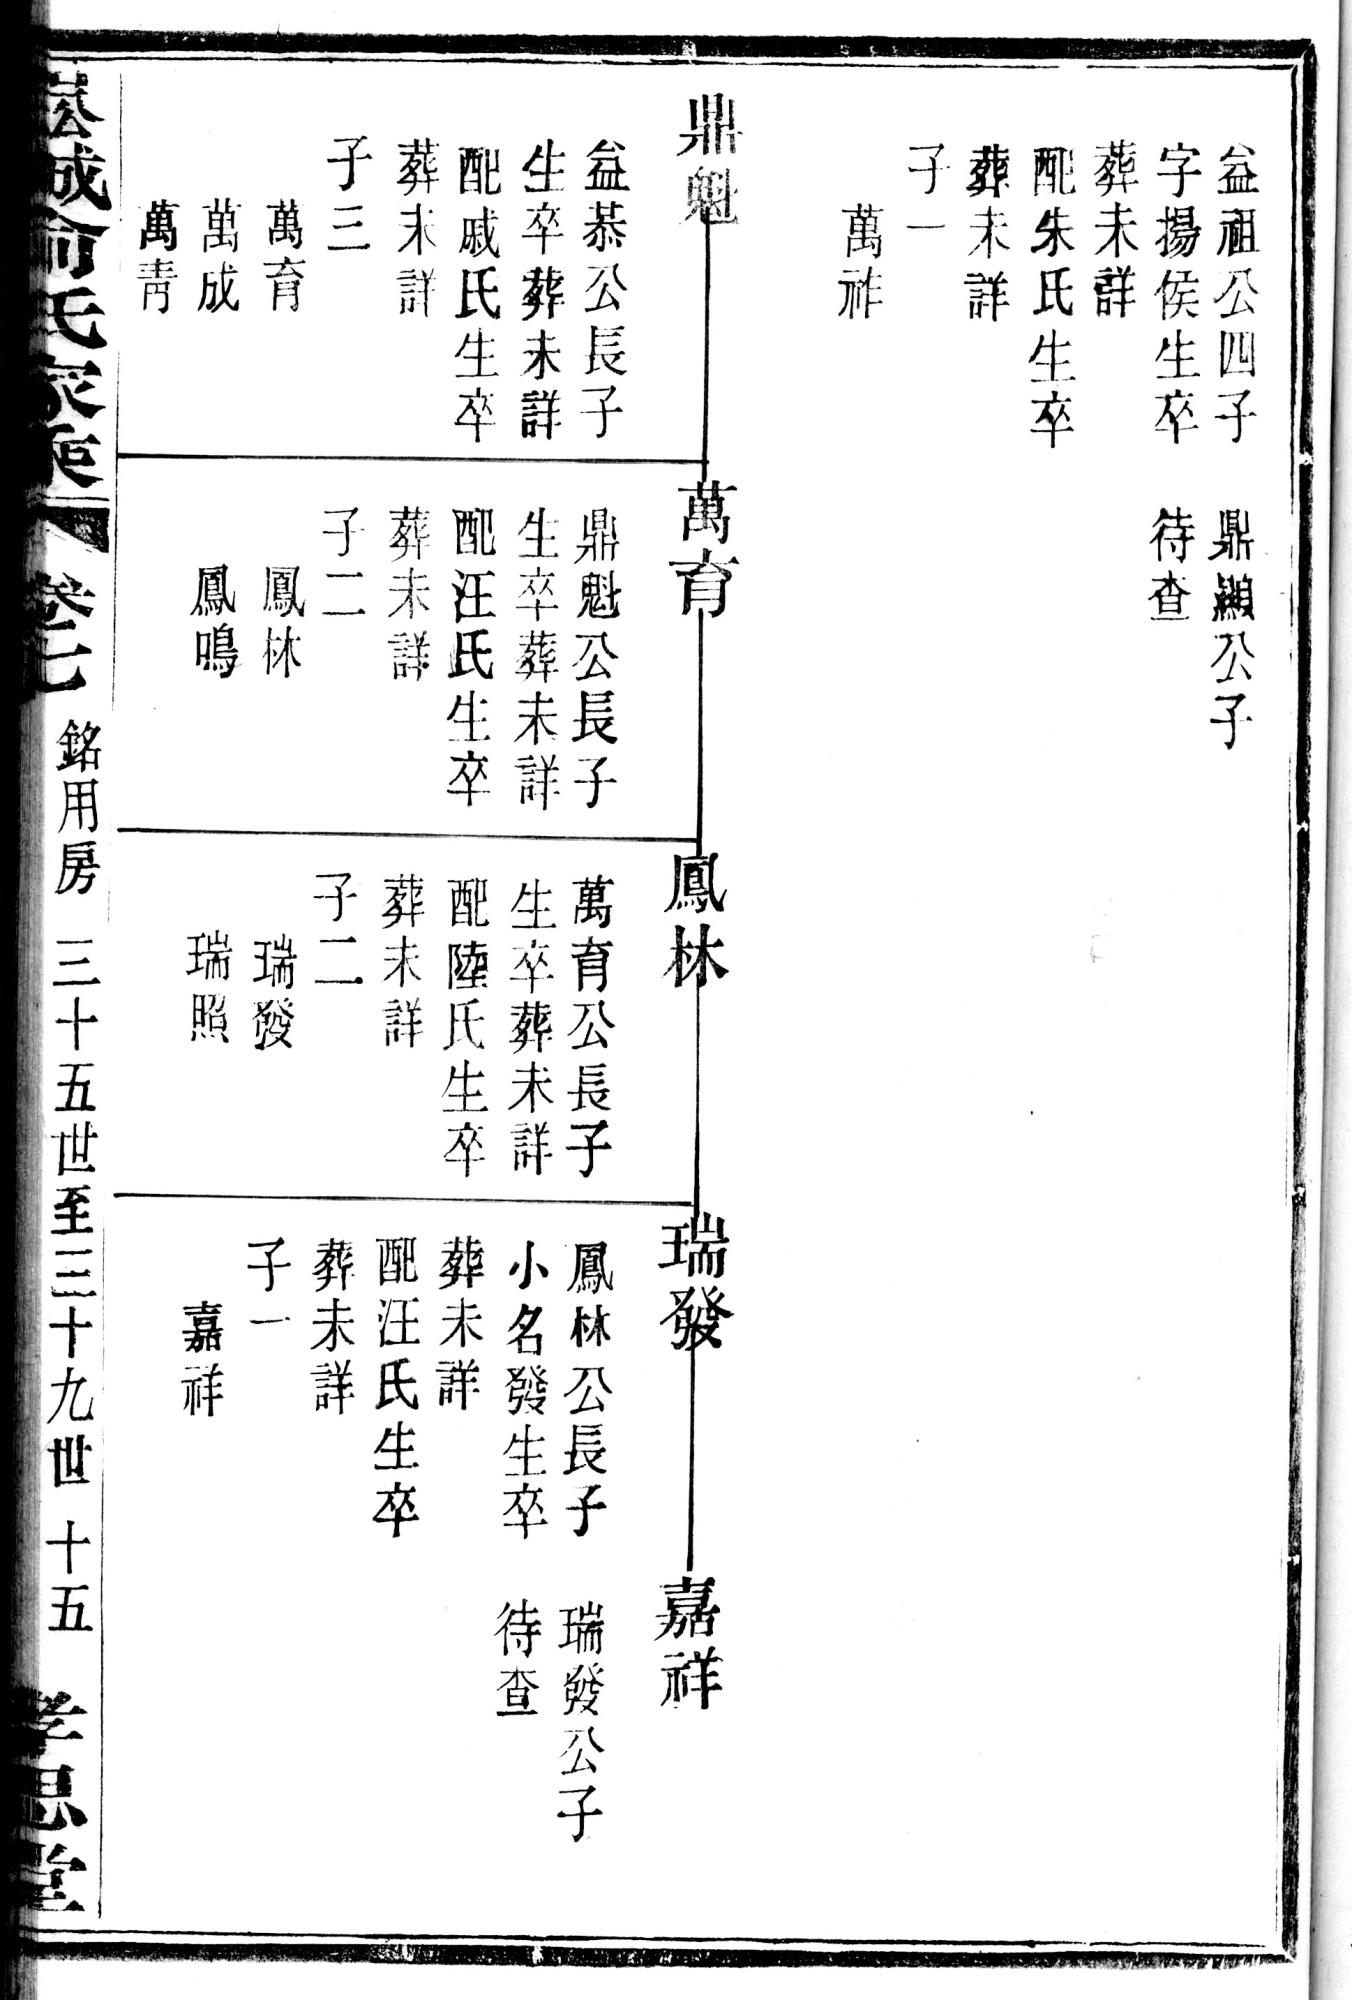 益祖公四子
字揚侯生卒
葬未詳
配朱氏生卒
葬未詳
子一
萬祚
鼎顯公子
待查
鼎魁
益恭公長子
生卒葬未詳
配戚氏生卒
葬未詳
子三
萬育
萬成
萬青
萬育
鼎魁公長子
生卒葬未詳
配汪氏生卒
葬未詳
子二
鳳林
鳳鳴
鳳林
萬育公長子
生卒葬未詳
配陸氏生卒
葬未詳
子二
瑞發
瑞照
瑞發
鳳林公長子
小名發生卒
葬未詳
配汪氏生卒
葬未詳
子一
嘉祥
嘉祥
瑞發公子
待查
城俞氏家乘
卷七
銘用房 三十五世至三十九世 十五
孝思堂